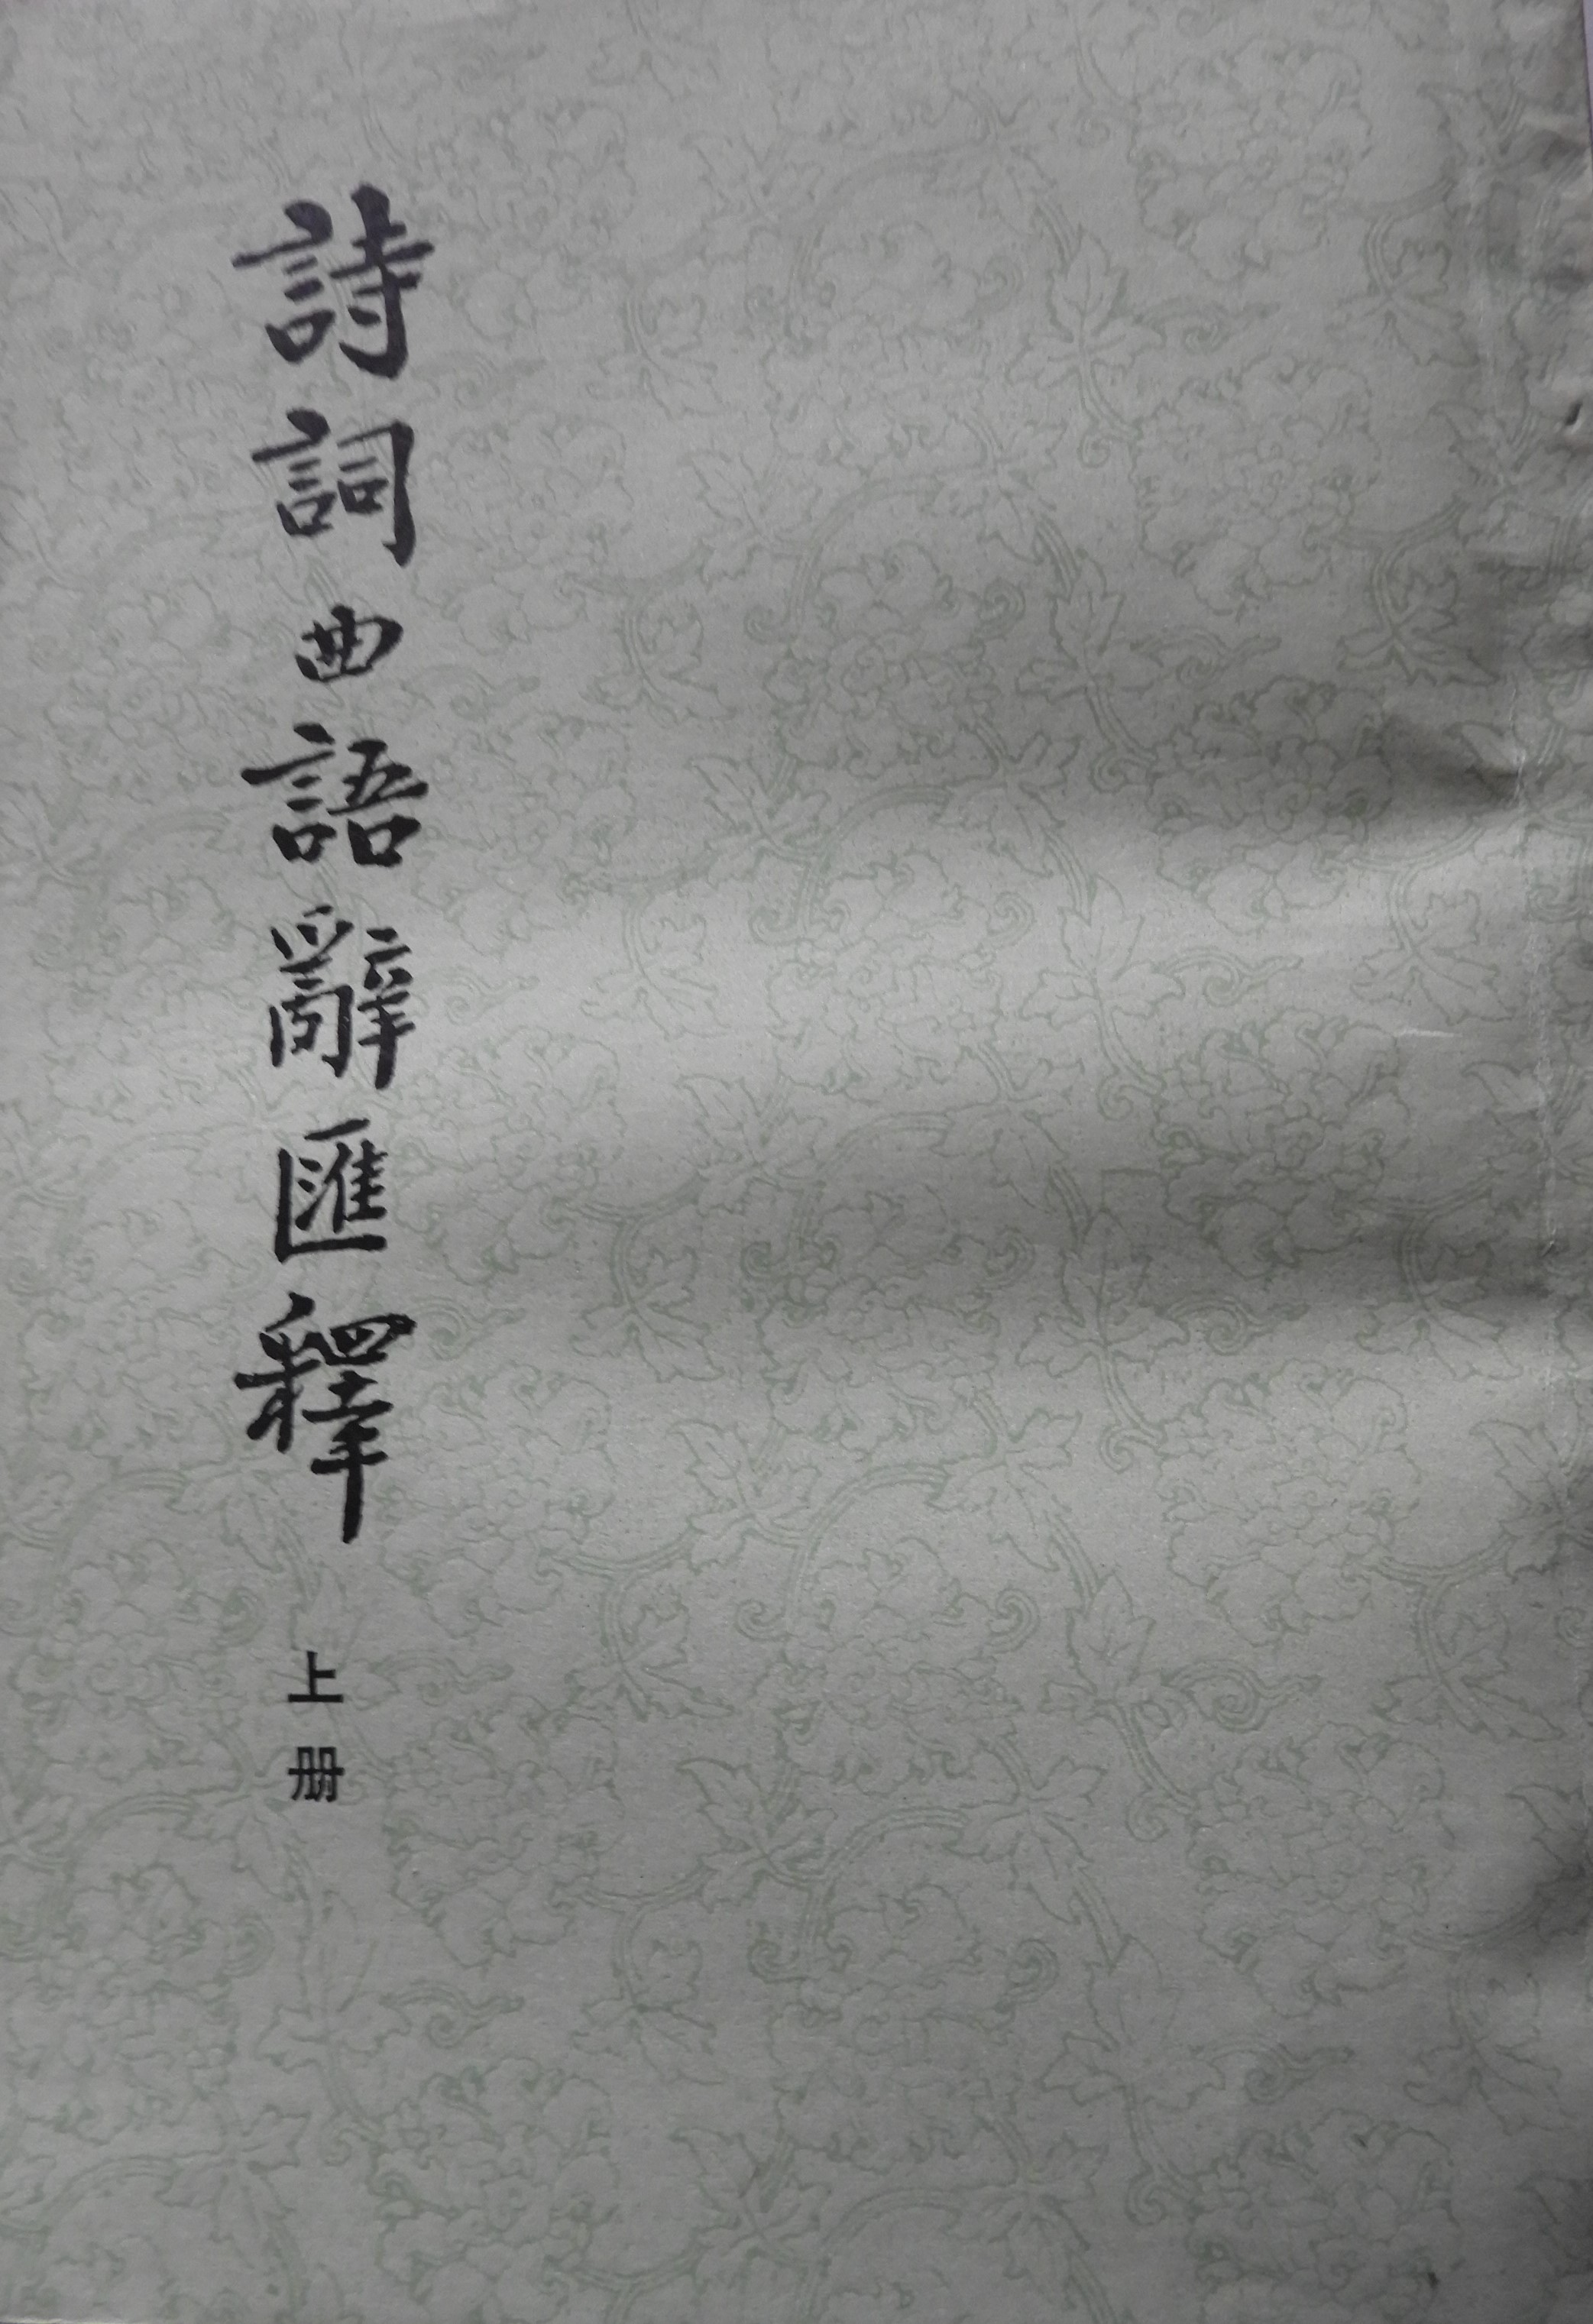 詩詞曲語辭匯釋
上册